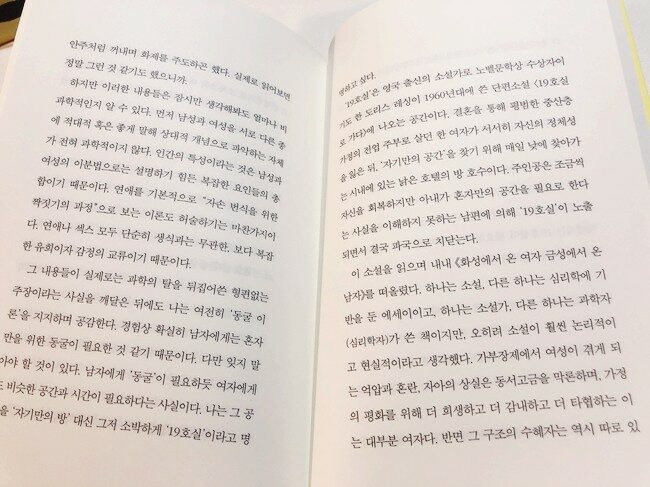 안주처럼 꺼내며 화제를 주도하곤 했다. 실제로 읽어보면
정말 그런 것 같기도 했으니까.
하지만 이러한 내용들은 잠시만 생각해봐도 얼마나 비
과학적인지 알 수 있다. 먼저 남성과 여성을 서로 다른 종
에 적대적 혹은 좋게 말해 상대적 개념으로 파악하는 자체
가 전혀 과학적이지 않다. 인간의 특성이라는 것은 남성과
여성의 이분법으로는 설명하기 힘든 복잡한 요인들의 총
합이기 때문이다. 연애를 기본적으로 "자손 번식을 위한
짝짓기의 과정"으로 보는 이론도 허술하기는 마찬가지이
다. 연애나 섹스 모두 단순히 생식과는 무관한, 보다 복잡
한 유희이자 감정의 교류이기 때문이다.
그 내용들이 실제로는 과학의 탈을 뒤집어쓴 형편없는
주장이라는 사실을 깨달은 뒤에도 나는 여전히 '동굴 이
론'을 지지하며 공감한다. 경험상 확실히 남자에게는 혼자
만을 위한 동굴이 필요한 것 같기 때문이다. 다만 잊지 말
아야 할 것이 있다. 남자에게 '동굴'이 필요하듯 여자에게
도 비슷한 공간과 시간이 필요하다는 사실이다. 나는 그 공
을 '자기만의 방' 대신 그저 소박하게 '19호실'이라고 명
명하고 싶다.
'19호실'은 영국 출신의 소설가로 노벨문학상 수상자이
기도 한 도리스 레싱이 1960년대에 쓴 단편소설 〈19호실
로 가다〉에 나오는 공간이다. 결혼을 통해 평범한 중산층
가정의 전업 주부로 살던 한 여자가 서서히 자신의 정체성
을 잃은 뒤, '자기만의 공간'을 찾기 위해 매일 낮에 찾아가
는 시내에 있는 낡은 호텔의 방 호수이다. 주인공은 조금씩
자신을 회복하지만 아내가 혼자만의 공간을 필요로 한다
는 사실을 이해하지 못하는 남편에 의해 '19호실'이 노출
되면서 결국 파국으로 치닫는다.
이 소설을 읽으며 내내 《화성에서 온 여자 금성에서 온
남자》를 떠올렸다. 하나는 소설, 다른 하나는 심리학에 기
반을 둔 에세이이고, 하나는 소설가, 다른 하나는 과학자
(심리학자)가 쓴 책이지만, 오히려 소설이 훨씬 논리적이
고 현실적이라고 생각했다. 가부장제에서 여성이 겪게 되
는 억압과 혼란, 자아의 상실은 동서고금을 막론하며, 가정
의 평화를 위해 더 희생하고 더 감내하고 더 타협하는 이
는 대부분 여자다. 반면 그 구조의 수혜자는 역시 따로 있